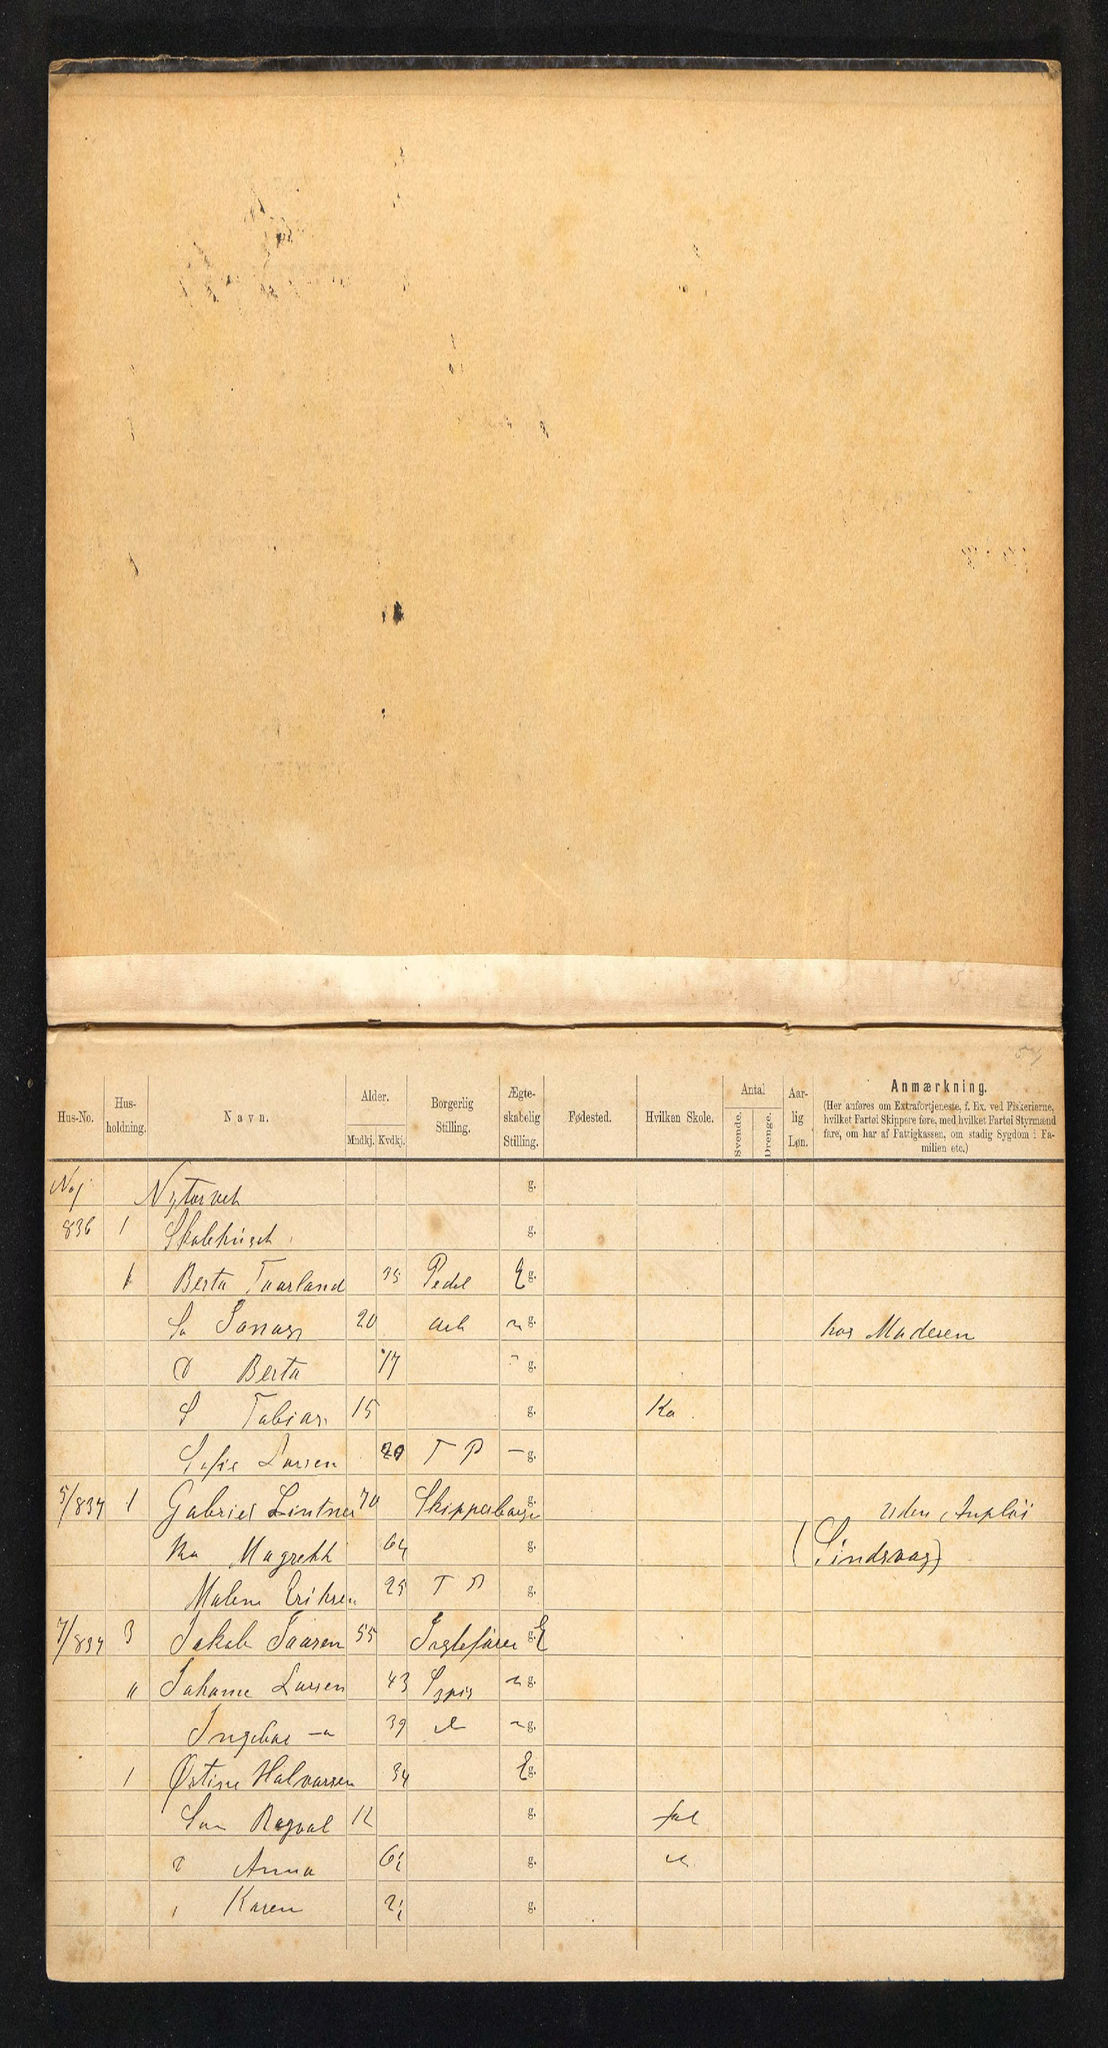 Hus-No. Hus-holdning. Navn. Alder. Mndkj. Kvdkj. Borgerlig Stilling. Ægte-skabelig Stilling. Fødested. Hvilken Skole. Antal Svende. Drenge. Aar-lig Løn. Anmærkning.
(Her anføres om Extrafortjeneste, f. Ex. ved Fiskerierne, hvilket Fartøi Skippere føre, med hvilket Fartøi Styrmænd fare, om har af Fattigkassen, om stadig Sygdom i Familien etc.)
Nytorvet g.
836 1 Skolehuset g.
Berta Taarland Pedel E g.
So Jonas 20 Arb " g. hos Madesen
D Berta 17 " g.
S Tobias 15 g. Ko
Sofie Larsen 20 T P — g.
5/834 1 Gabriel Lintner 70 Skipperborger g. uden
Ko Magrethe 64 g. (Sindsvag)
Malene Eriksen 25 T P g.
7/834 3 Jakob 55 g. E
" Johanne Larsen 43 " g.
39 " g.
1 Østine Halvorsen 34 E g.
Søn Ragval 12 g. fol
D Anna 6½ g. "
" Karen 2½ g.